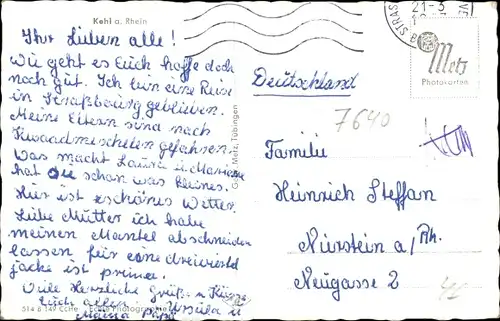 Kehl a. Rhein
Ihr Lieben alle!
Wie geht es Euch hoffe doch
noch gut. Ich bin eine Reise
in Straßbourg geblieben.
Meine Eltern sind nach
gefahren.
Was macht Laura u.
hat schon was kleines.
Hier ist schönes Wetter.
Liebe Mutter ich habe
meinen Mantel abschneiden
lassen für eine dreiviertel
jacke ist prima.
Viele Herzliche Grüße u. Küsse
Euch allen Ursula u
514 B 149 Echte Photographie
Gebr. Metz, Tübingen
STRAS
21-3
Metz
Photokarten
Deutschland
7640
Familie
Heinrich Steffan
Nierstein a/Rh.
Neugasse 2